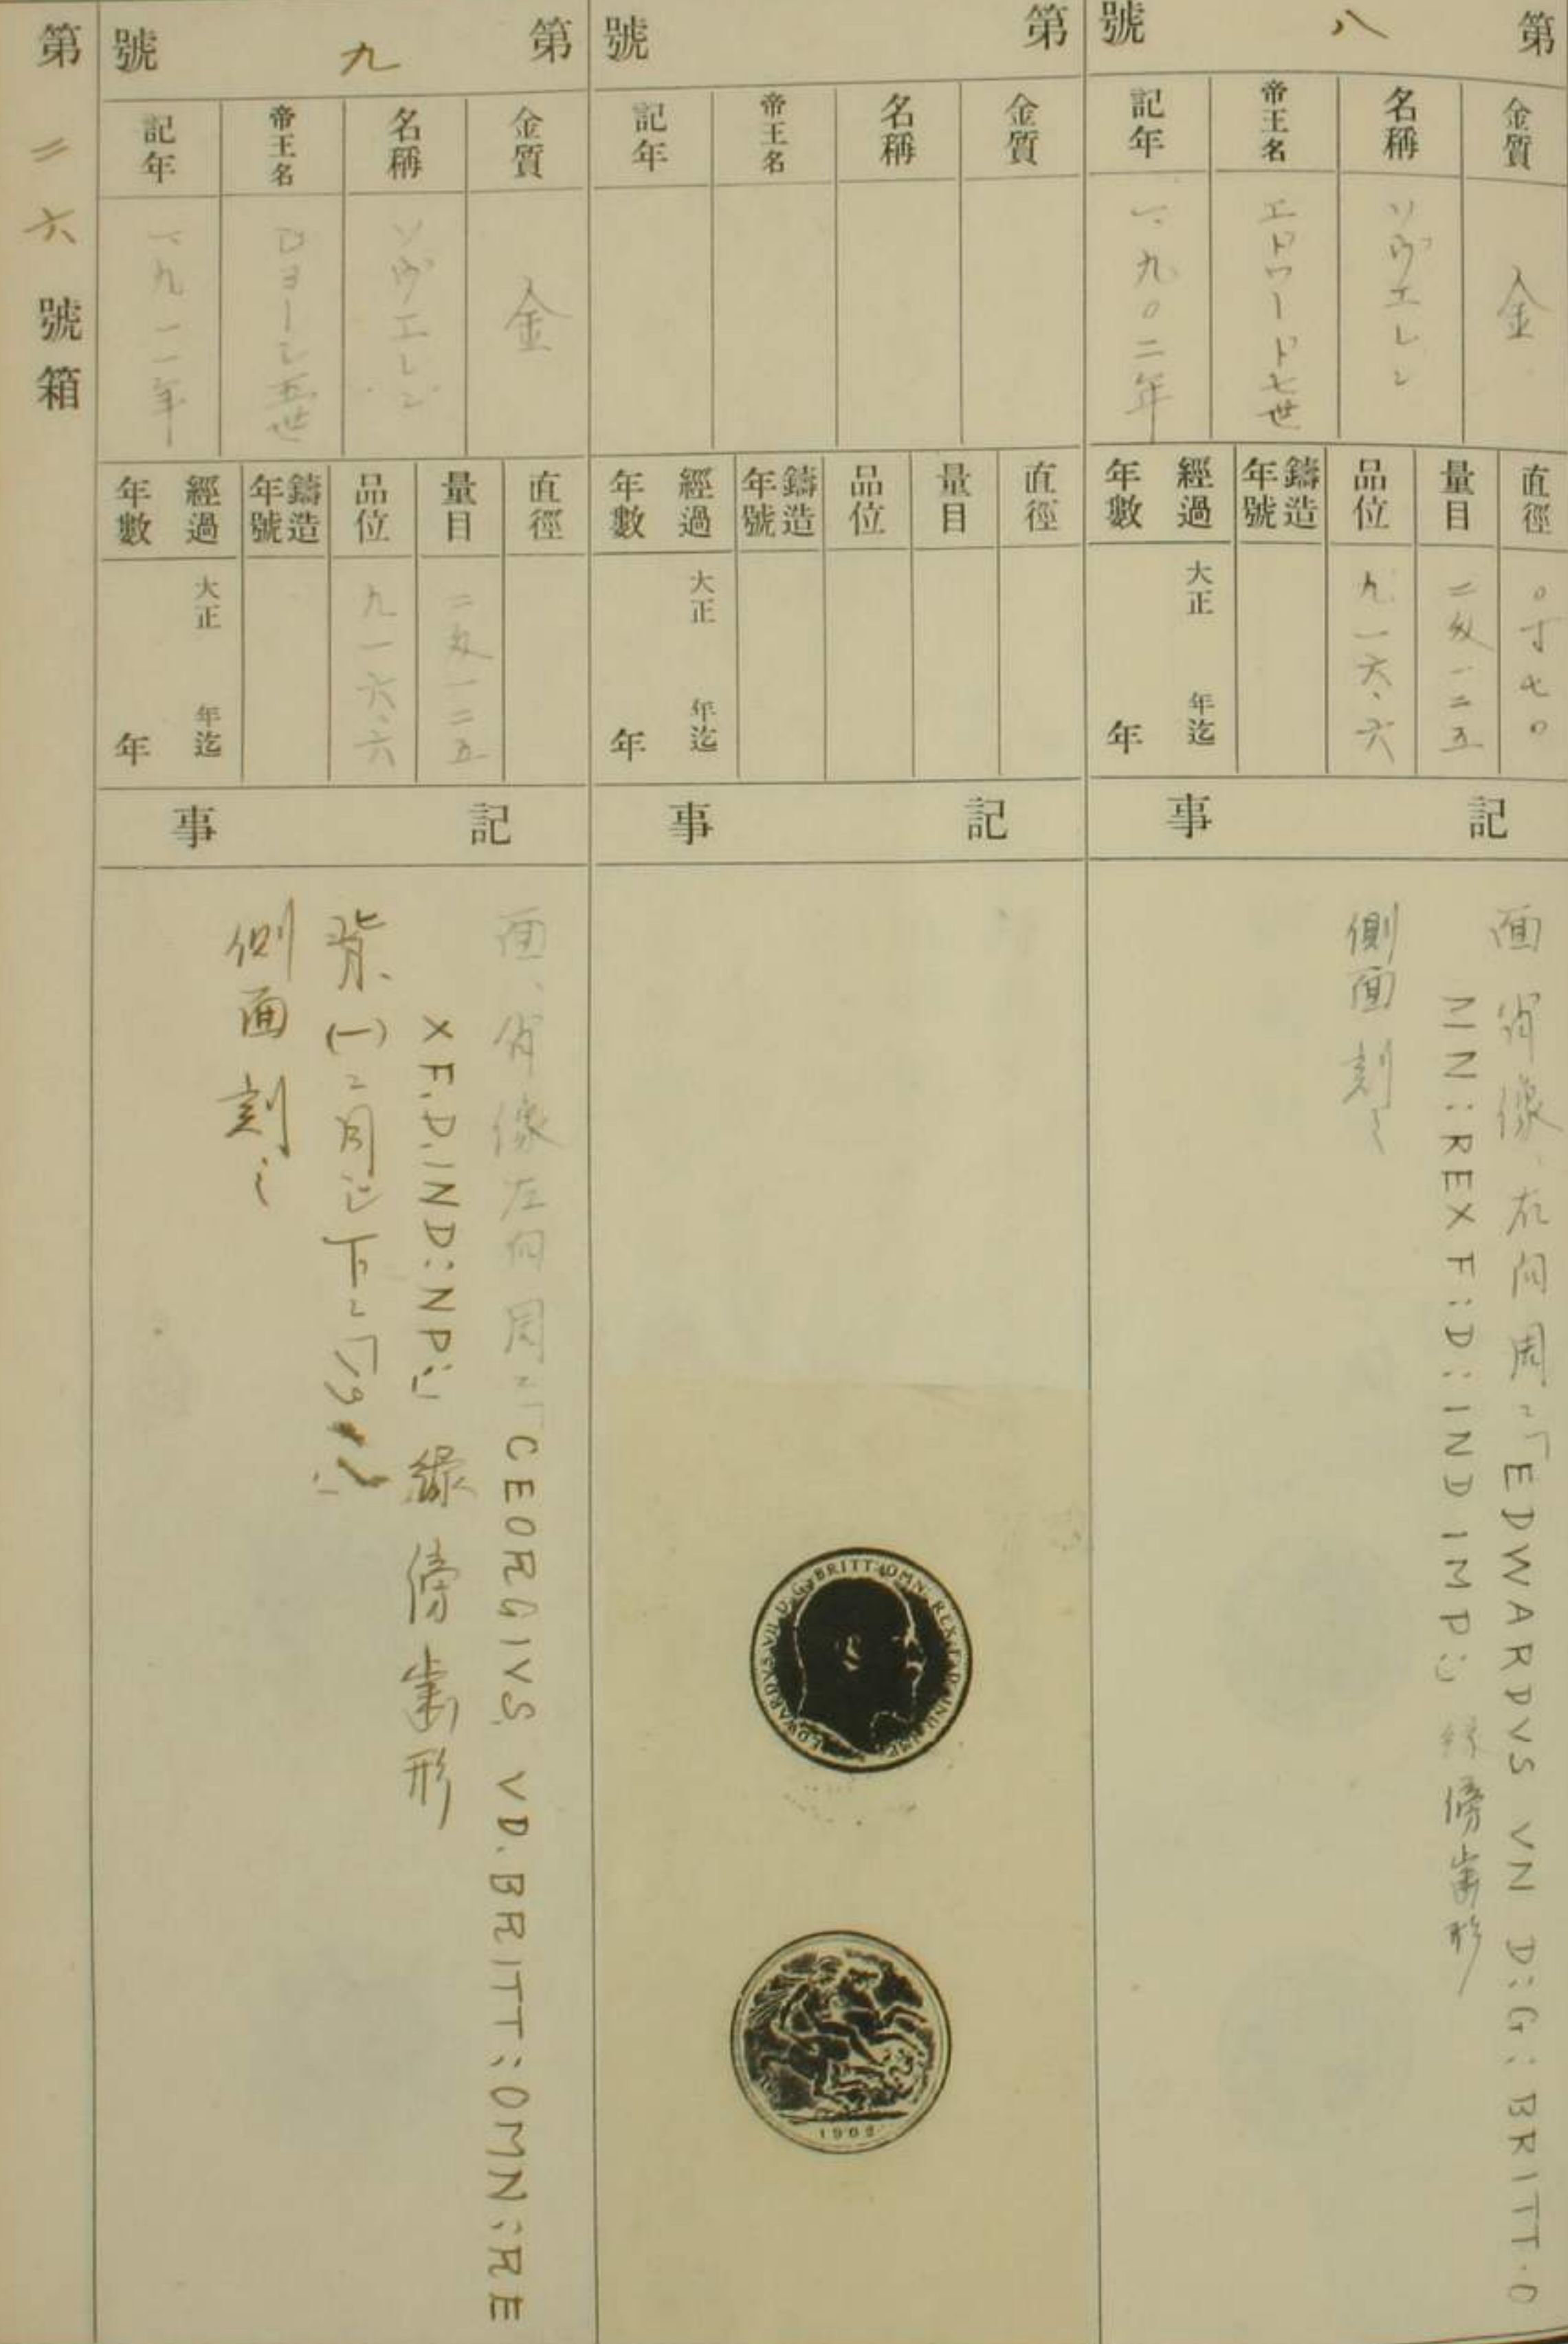 第八號
金質
金
名稱
ソヴエレン
帝王名
エドワード七世
記年
一、九〇二年
直徑
〇寸七〇
量目
二匁一二五
品位
九一六、六
鑄造年號
經過年數
大正 年迄
年
記事
面 肖像、右向周ニ「EDWARDVS VN D:G: BRITT.O
MN:REX F:D:IND IMP:」 緣傍歯形
側面 刻ミ
第 號
金質
名稱
帝王名
記年
直徑
量目
品位
鑄造年號
經過年數
大正 年迄
年
記事
EDWARDVS VII D:G: BRITT: OMN: REX F:D: IND: IMP:
1902
第九號
金質
金
名稱
ソヴエレン
帝王名
ジヨージ五世
記年
一九一一年
直徑
量目
二匁一二五
品位
九一六、六
鑄造年號
經過年數
大正 年迄
年
記事
面、肖像左向周ニ「CEORGIVS VD.BRITT:OMN:RE
X F.D.IND:NP:」 緣傍歯形
背、(一)ニ同じ下ニ
側面刻ミ
第二六號箱